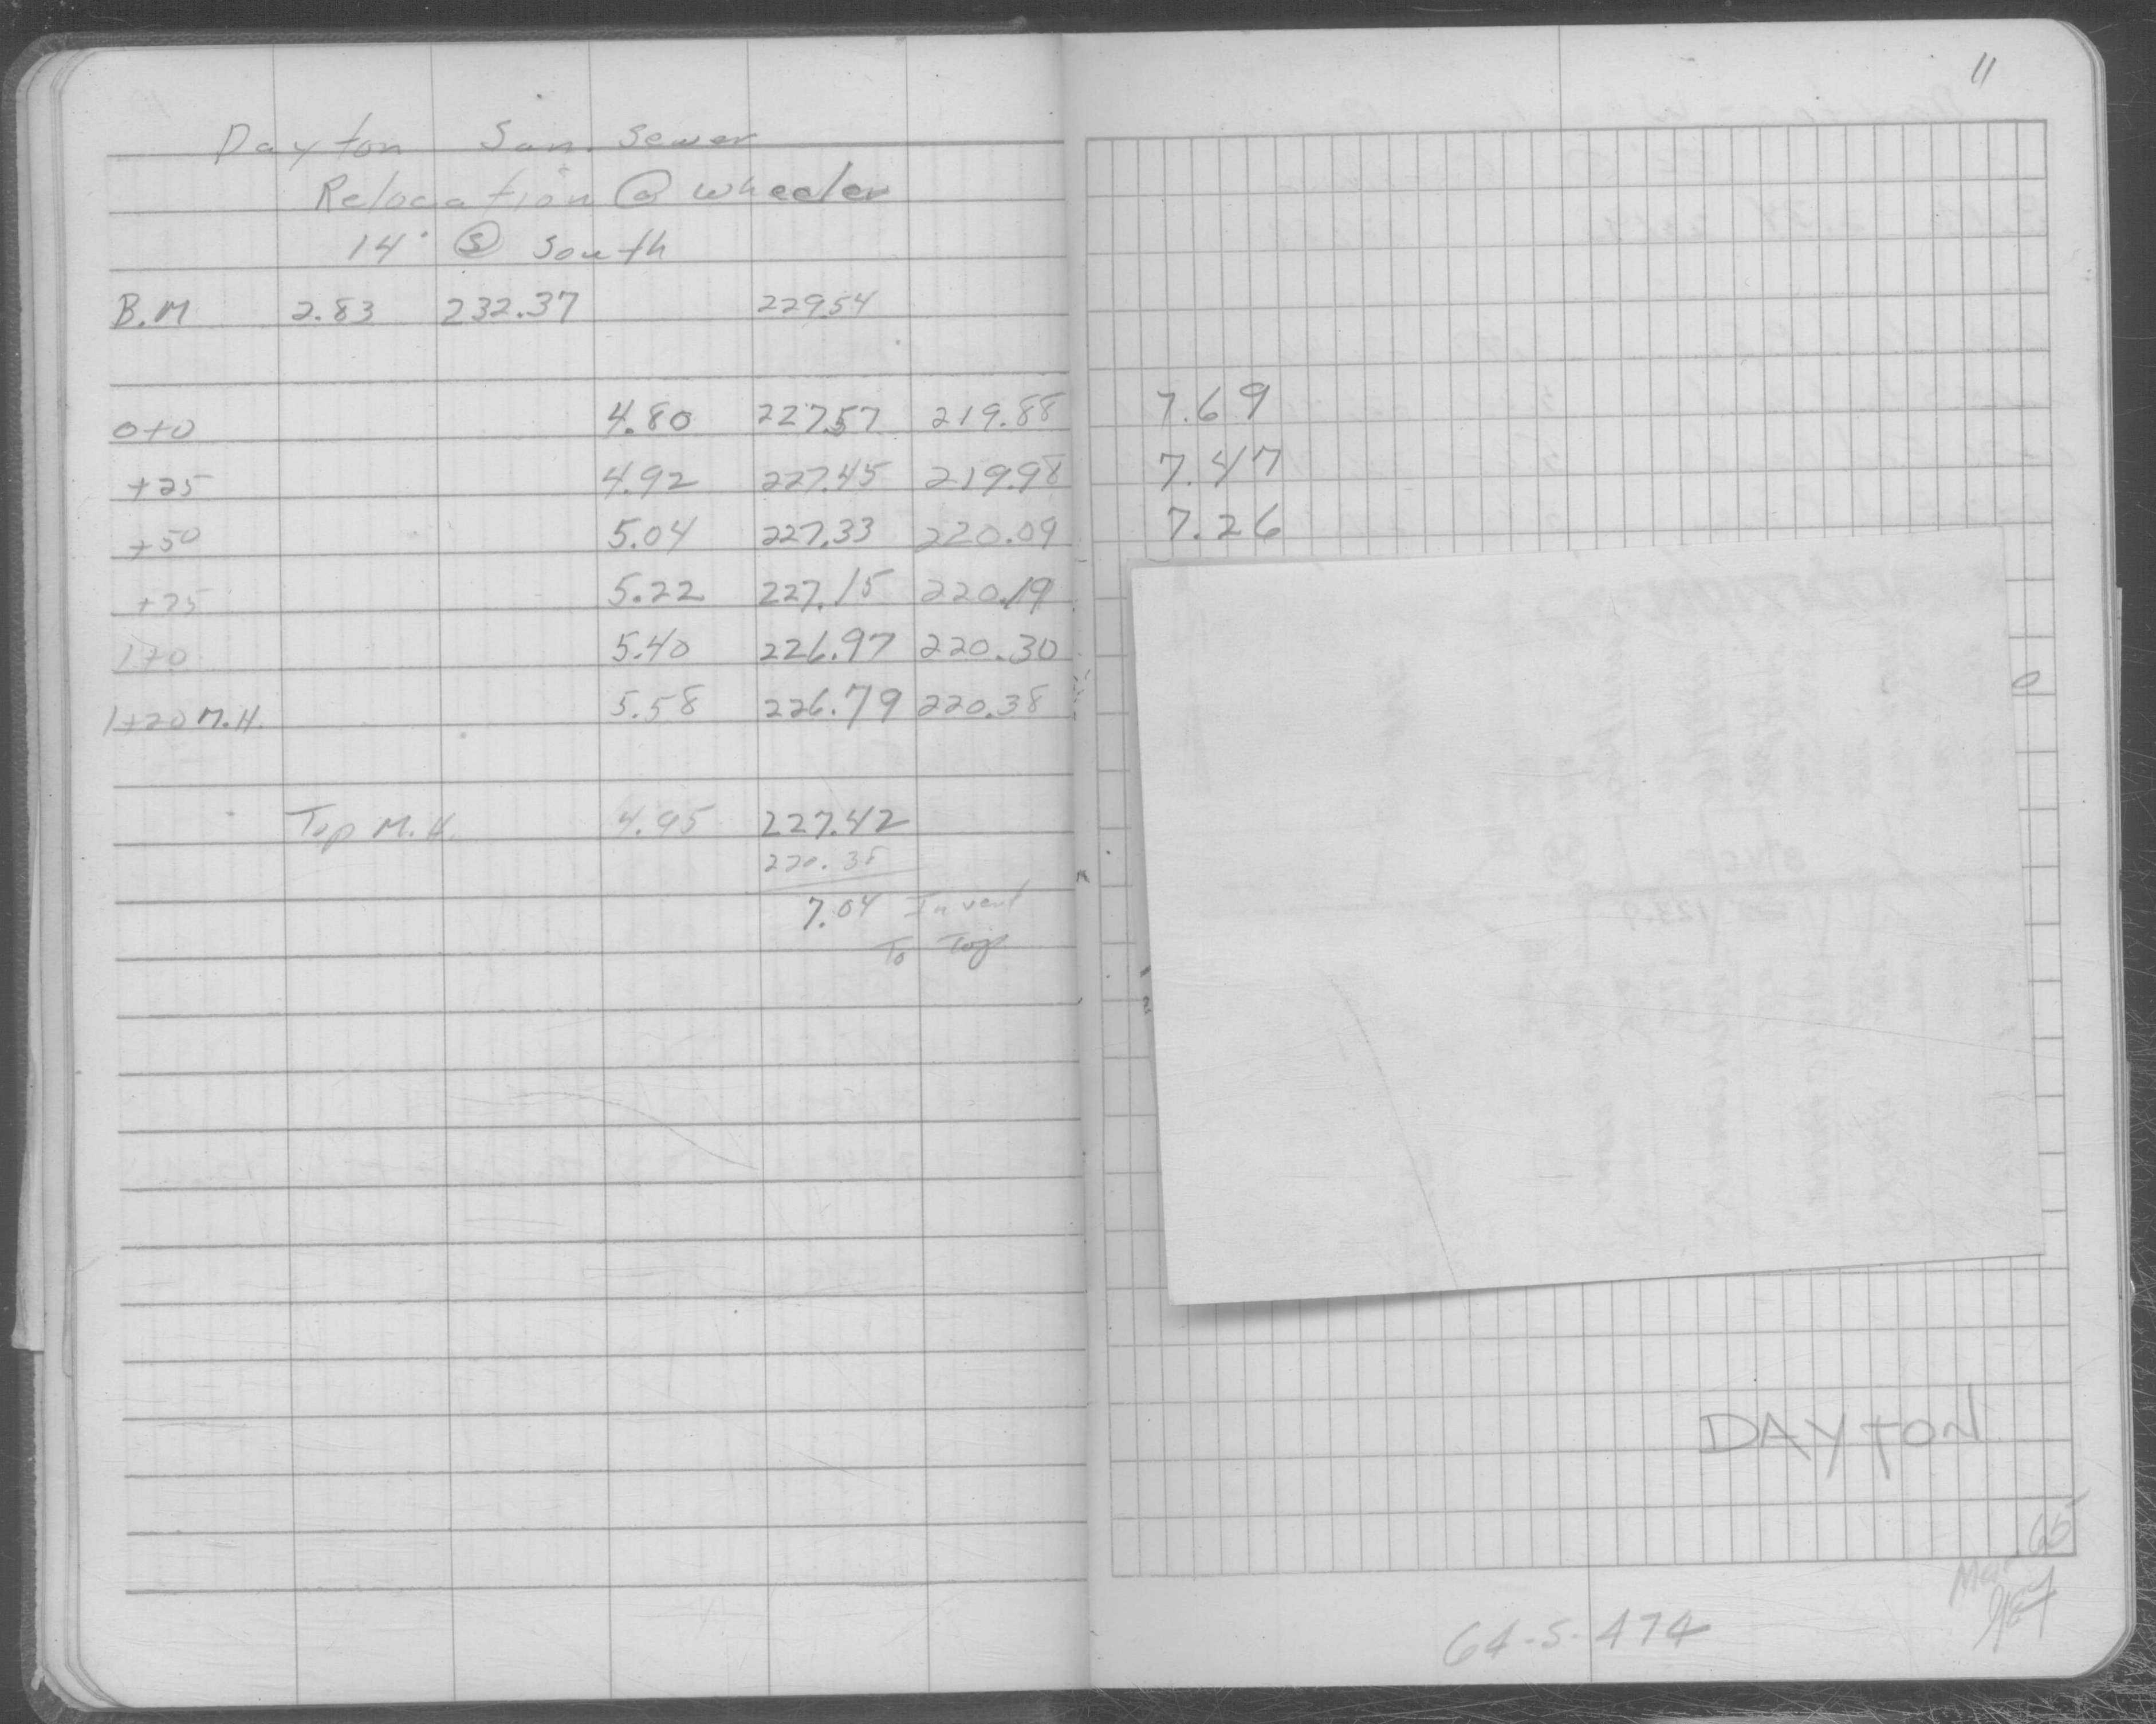 11
Dayton San. Sewer
Relocation @ Wheeler
14' Ⓢ South
B.M 2.83 232.37 229.54
0+0 4.80 227.57 219.88 7.69
+25 4.92 227.45 219.98 7.47
+50 5.04 227.33 220.09 7.26
+75 5.22 227.15 220.19
1+0 5.40 226.97 220.30
1+20 M.H. 5.58 226.79 220.38
Top M.H. 4.95 227.42
220.38
7.04 Invert
To Top
DAYTON
65
64-S-474